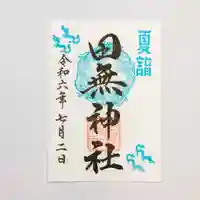 夏詣
田無神社
令和六年七月二日